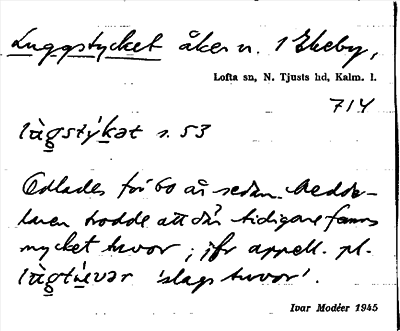 Luggstycket åker n. 1 Ekeby,
Lofta sn, N. Tjusts hd, Kalm. l.
714
lùgstýkət s. 53
Odlades för 60 år sedan. Medde-
laren trodde att där tidigare fanns
mycket tuvor; jfr appell. pl.
lùgtùvər 'slags tuvor'.
Ivar Modéer 1945